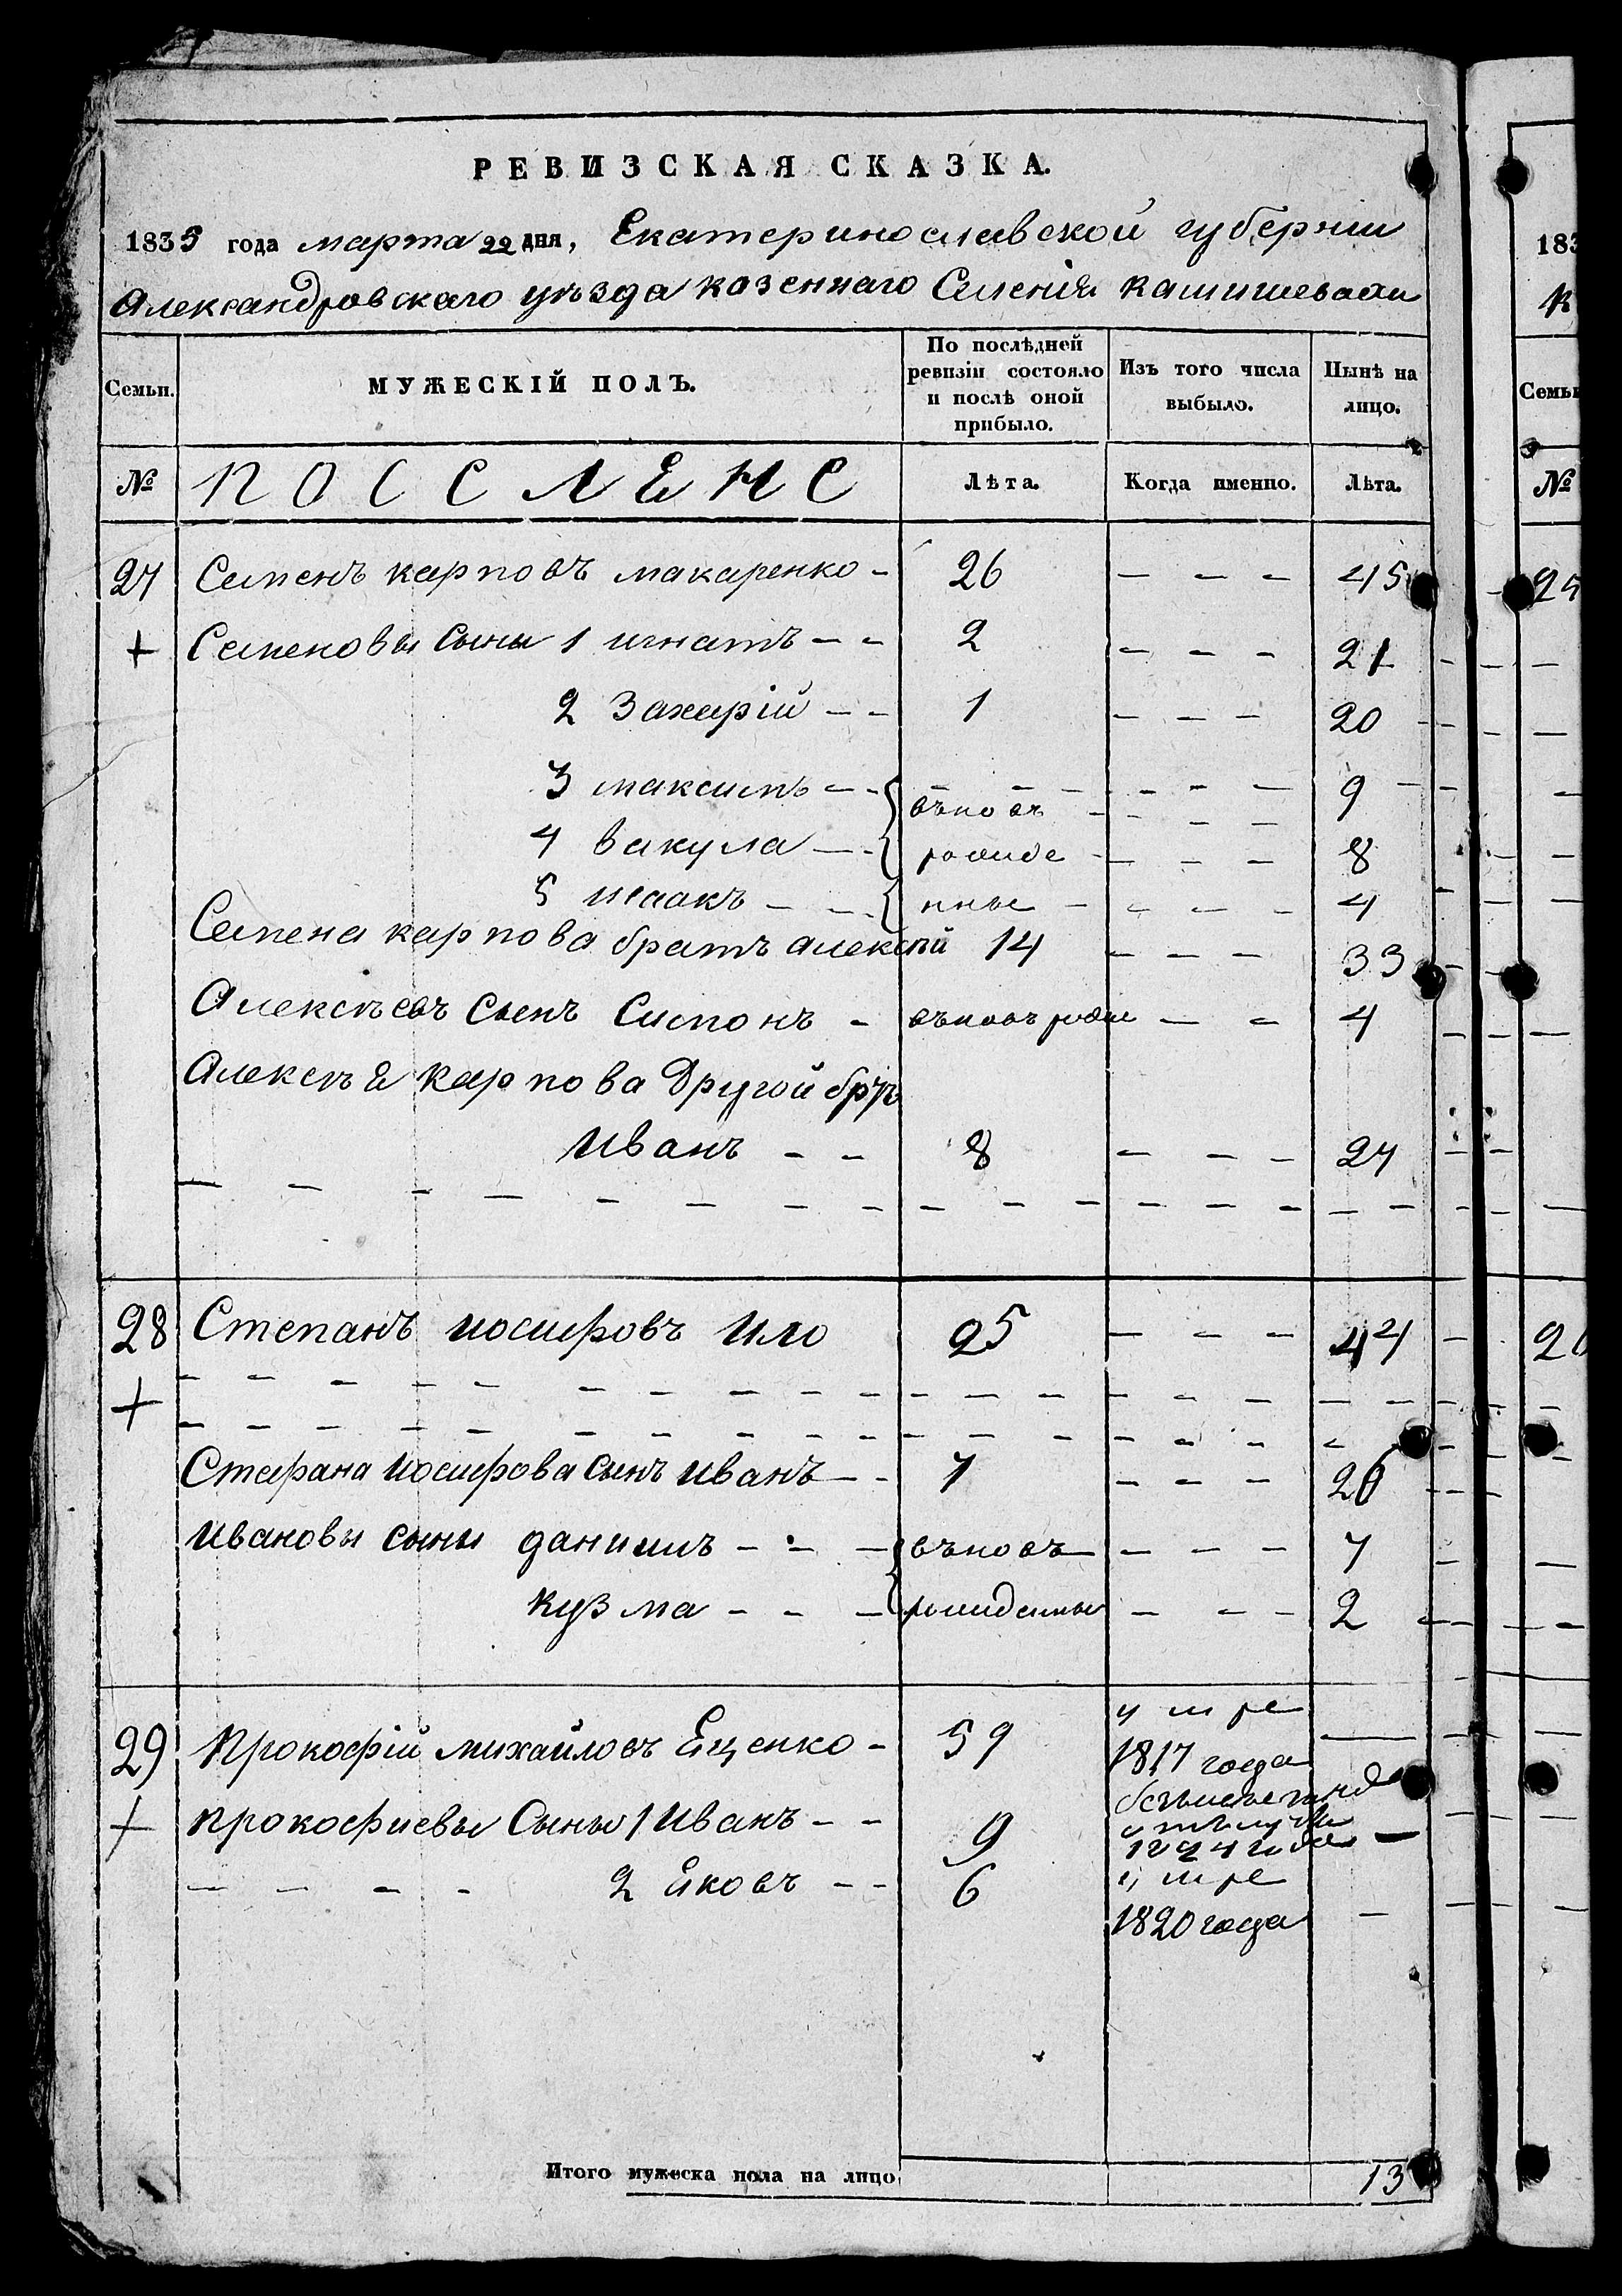 РЕВИЗСКАЯ СКАЗКА.
1835 года марта 22 дня, Екатеринославской губерніи
Александровскаго уѣзда казеннаго Селенія
Семьи.
МУЖЕСКІЙ ПОЛЪ.
По послѣдней ревизіи состояло и послѣ оной прибыло.
Изъ того числа выбыло.
Нынѣ на лицо.
№
ПОССЛЕНС
Лѣта.
Когда именно.
Лѣта.
27 Семенъ карповъ макаренко - 26 - - - 45
+ Семеновы Сыны 1 игнатъ - - 2 - - - 21
2 Захарій - - 1 - - - 20
3 максимъ - - въновъ - - - 9
4 вакула - - рожде - - - 8
5 исаакъ - - нные - - - 4
Семена карпова братъ алексѣй 14 - - - 33
Алексѣевъ Сынъ Симонъ - въновъ рожде - - 4
Алексѣя карпова Другой бръ
Иванъ - - 8 - - - 27
28 Степанъ иосифовъ Ило 25 - - - 44
+
Стефана иосифова сынъ иванъ - - 7 - - - 26
ивановы сыны данишлъ - - - въновъ - - - 7
кузма - - - рожденные - - - 2
29 Прокофій михайловъ Ещенко - 59 умре 1817 года -
+ прокофиевы Сыны 1 Иванъ - - 9 1824 года -
2 Яковъ - - 6 умре 1820 года -
Итого мужеска пола на лицо 13
183
Семьи
№